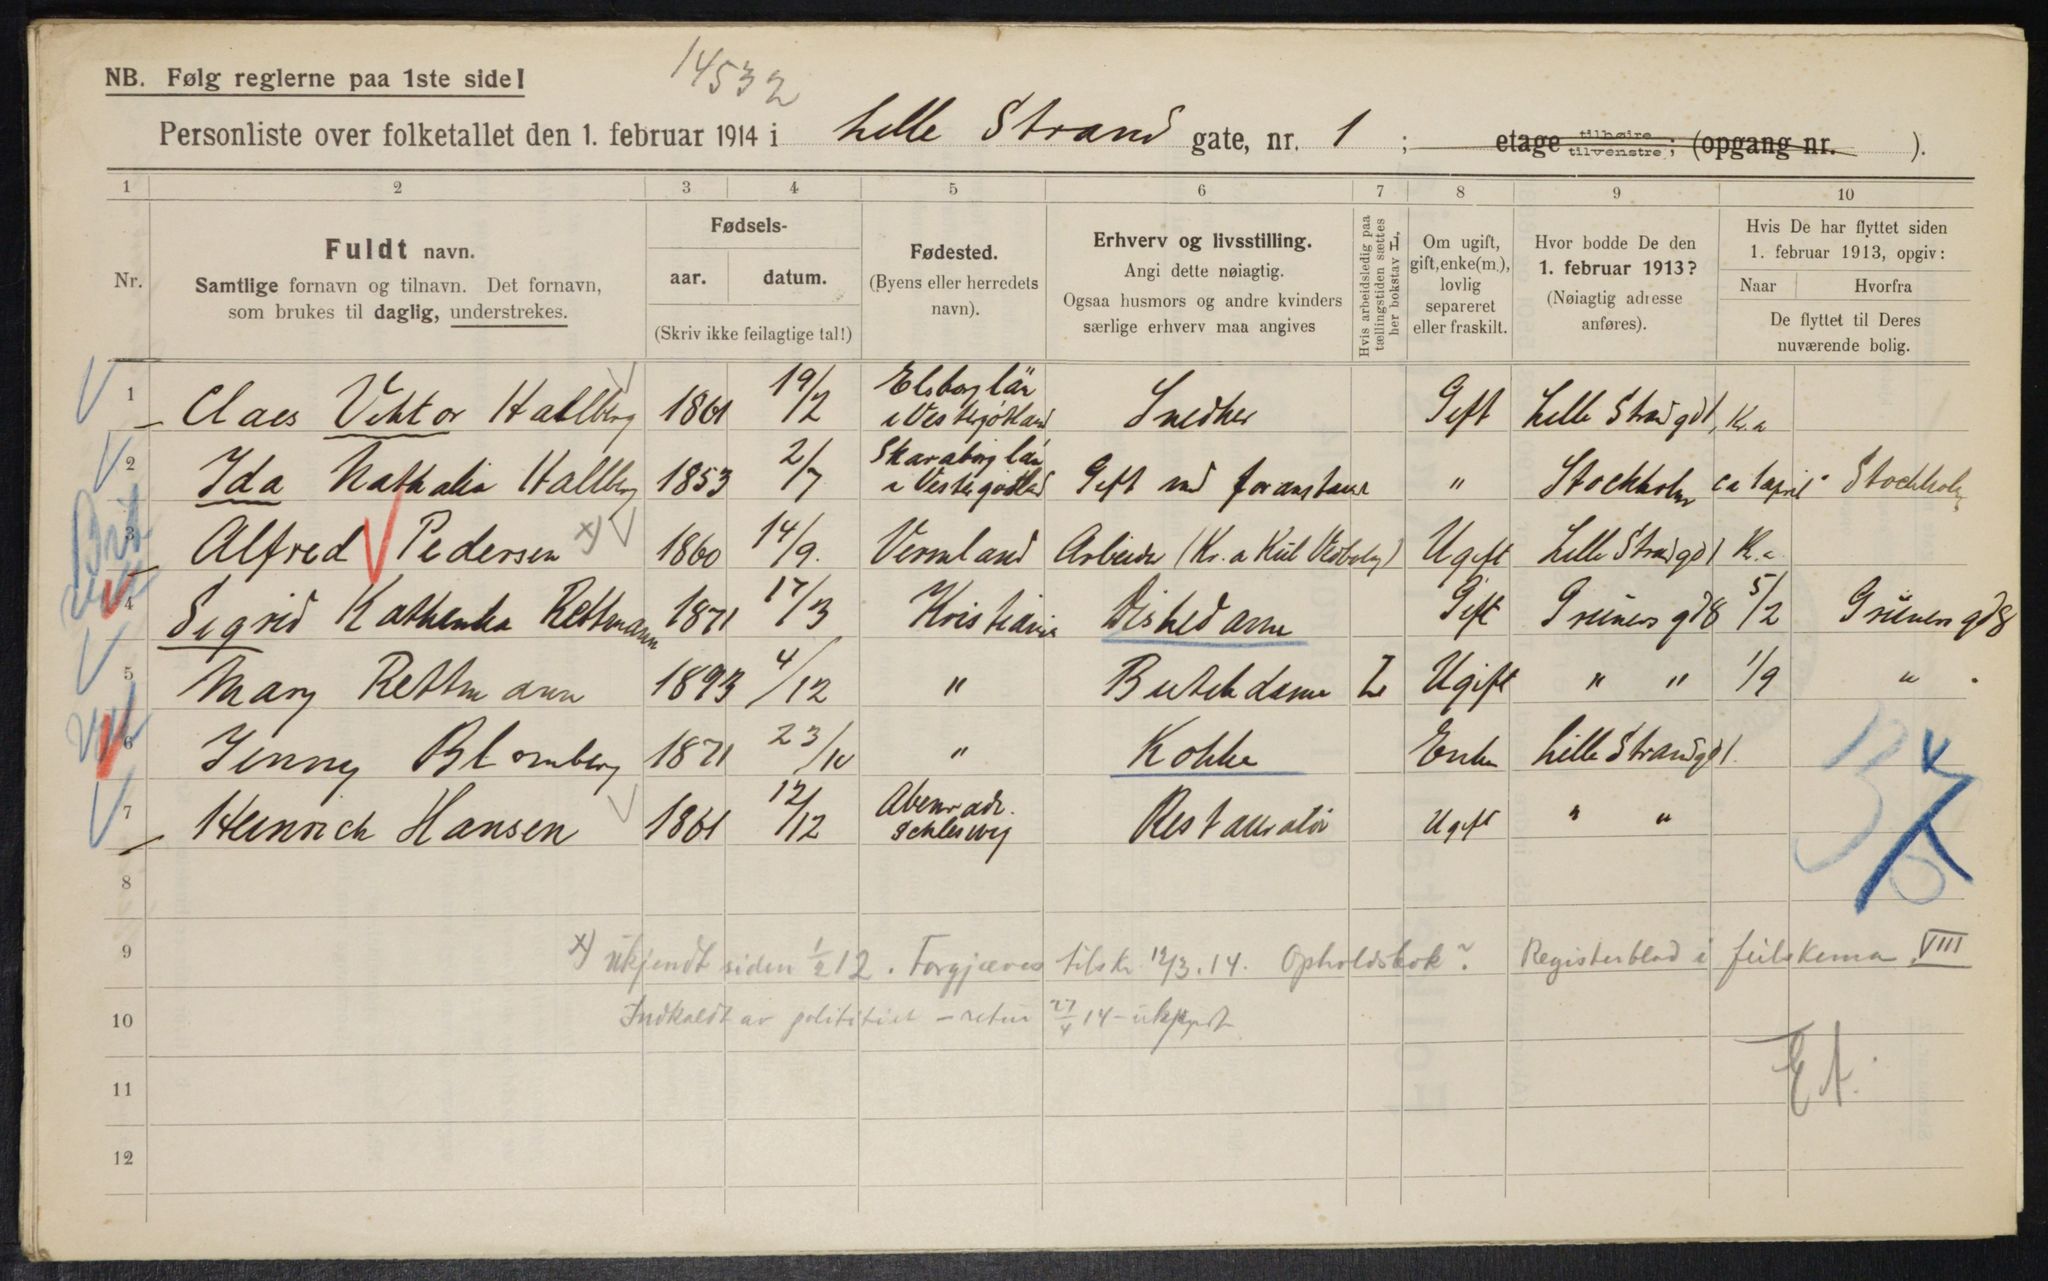 14532
NB. Følg reglerne paa 1ste side!
Personliste over folketallet den 1. februar 1914 i Lille Strand gate, nr. 1 ; etage tilhøire tilvenstre; (opgang nr. ).
1 2 3 4 5 6 7 8 9 10
Nr.
Fuldt navn.
Samtlige fornavn og tilnavn. Det fornavn,
som brukes til daglig, understrekes.
Fødsels-
aar. datum.
(Skriv ikke feilagtige tal!)
Fødested.
(Byens eller herredets
navn).
Erhverv og livsstilling.
Angi dette nøiagtig.
Ogsaa husmors og andre kvinders
særlige erhverv maa angives
Hvis arbeidsledig paa
tællingstiden sættes
her bokstav L.
Om ugift,
gift, enke(m.),
lovlig
separeret
eller fraskilt.
Hvor bodde De den
1. februar 1913?
(Nøiagtig adresse
anføres).
Hvis De har flyttet siden
1. februar 1913, opgiv:
Naar Hvorfra
De flyttet til Deres
nuværende bolig.
1 Claes Viktor Hallberg 1861 19/2 Elsborg län i Vestergötland Snedker Gift Lille Strandgd 1, Kr.a
2 Ida Nathalia Hallberg 1853 2/7 Skaraborg län i Vestergötland Gift med foranstaaende " Stockholm ca 1 april Stockholm
3 Alfred Pedersen x) 1860 14/9. Vermland Arbeider (Kr.a Kul Vedbolag) Ugift Lille Strandgd 1 Kr.a
4 Sigrid Kathenka Rettmann 1871 17/3 Kristiania Diskedame Gift Grüners gd 8 5/2 Grüners gd 8
5 Mary Rettmann 1893 4/12 " Butikdame L Ugift " " 1/9 "
6 Jenny Blomberg 1871 23/10 " Kokke Enke Lille Strandgd 1.
7 Heinrich Hansen 1861 12/12 Abenrade. Schleswig Restauratör Ugift " "
8
9 x) ukjendt siden 1/2 12. Forgjæves tilskr. 12/3.14. Opholdsbok? Registerblad i feilskema VIII
10 Indkaldt av politiet – retur 27/4 14 – ukjendt
11
Et.
12